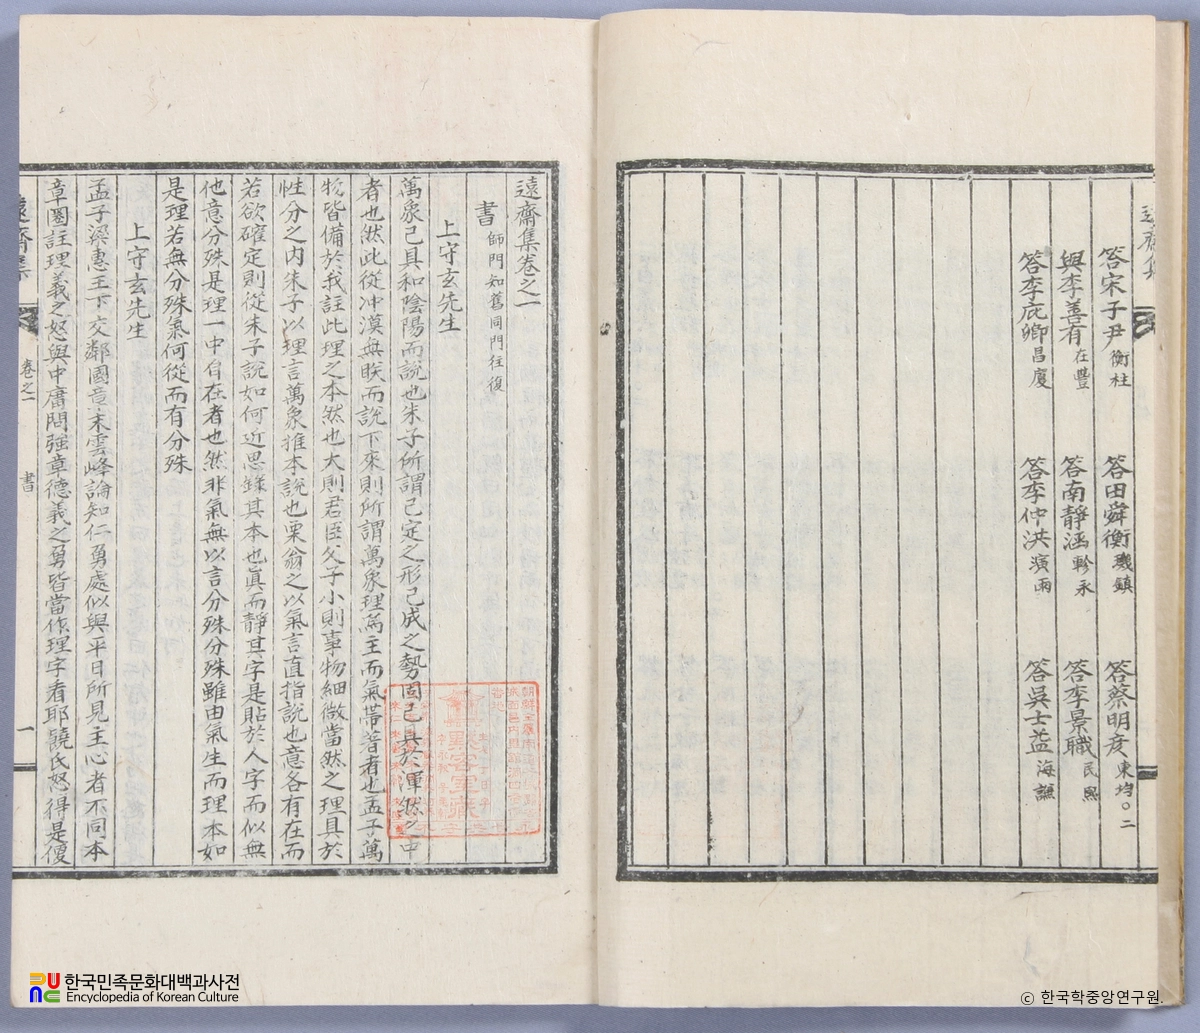 答宋子尹 衡柱 答田舜衡 璣鎮 答蔡明彦 東均○二
與李善有 在豐 答南靜涵 軫永 答李景職 民熙
答李庇卿 昌廈 答李仲洪 演雨 答吳士益 海謙
遠齋集卷之一
書 師門知舊同門往復
上守玄先生
萬象已具和陰陽而說也朱子所謂已定之形已成之勢固已具於渾然之中
者也然此從冲漠無眹而說下來則所謂萬象理爲主而氣帶著者也孟子萬
物皆備於我註此理之本然也大則君臣父子小則事物細微當然之理具於
性分之內朱子以理言萬象推本說也栗翁之以氣言直指說也意各有在而
若欲確定則從朱子說如何近思錄其本也眞而靜其字是貼於人字而似無
他意分殊是理一中自在者也然非氣無以言分殊分殊雖由氣生而理本如
是理若無分殊氣何從而有分殊
上守玄先生
孟子梁惠王下交鄰國章末雲峰論知仁勇處似與平日所見主心者不同本
章圈註理義之怒與中庸問强章德義之勇皆當作理字看耶饒氏怒得是優
遠齋集
卷之一
書
一
한국민족문화대백과사전
Encyclopedia of Korean Culture
ⓒ 한국학중앙연구원.